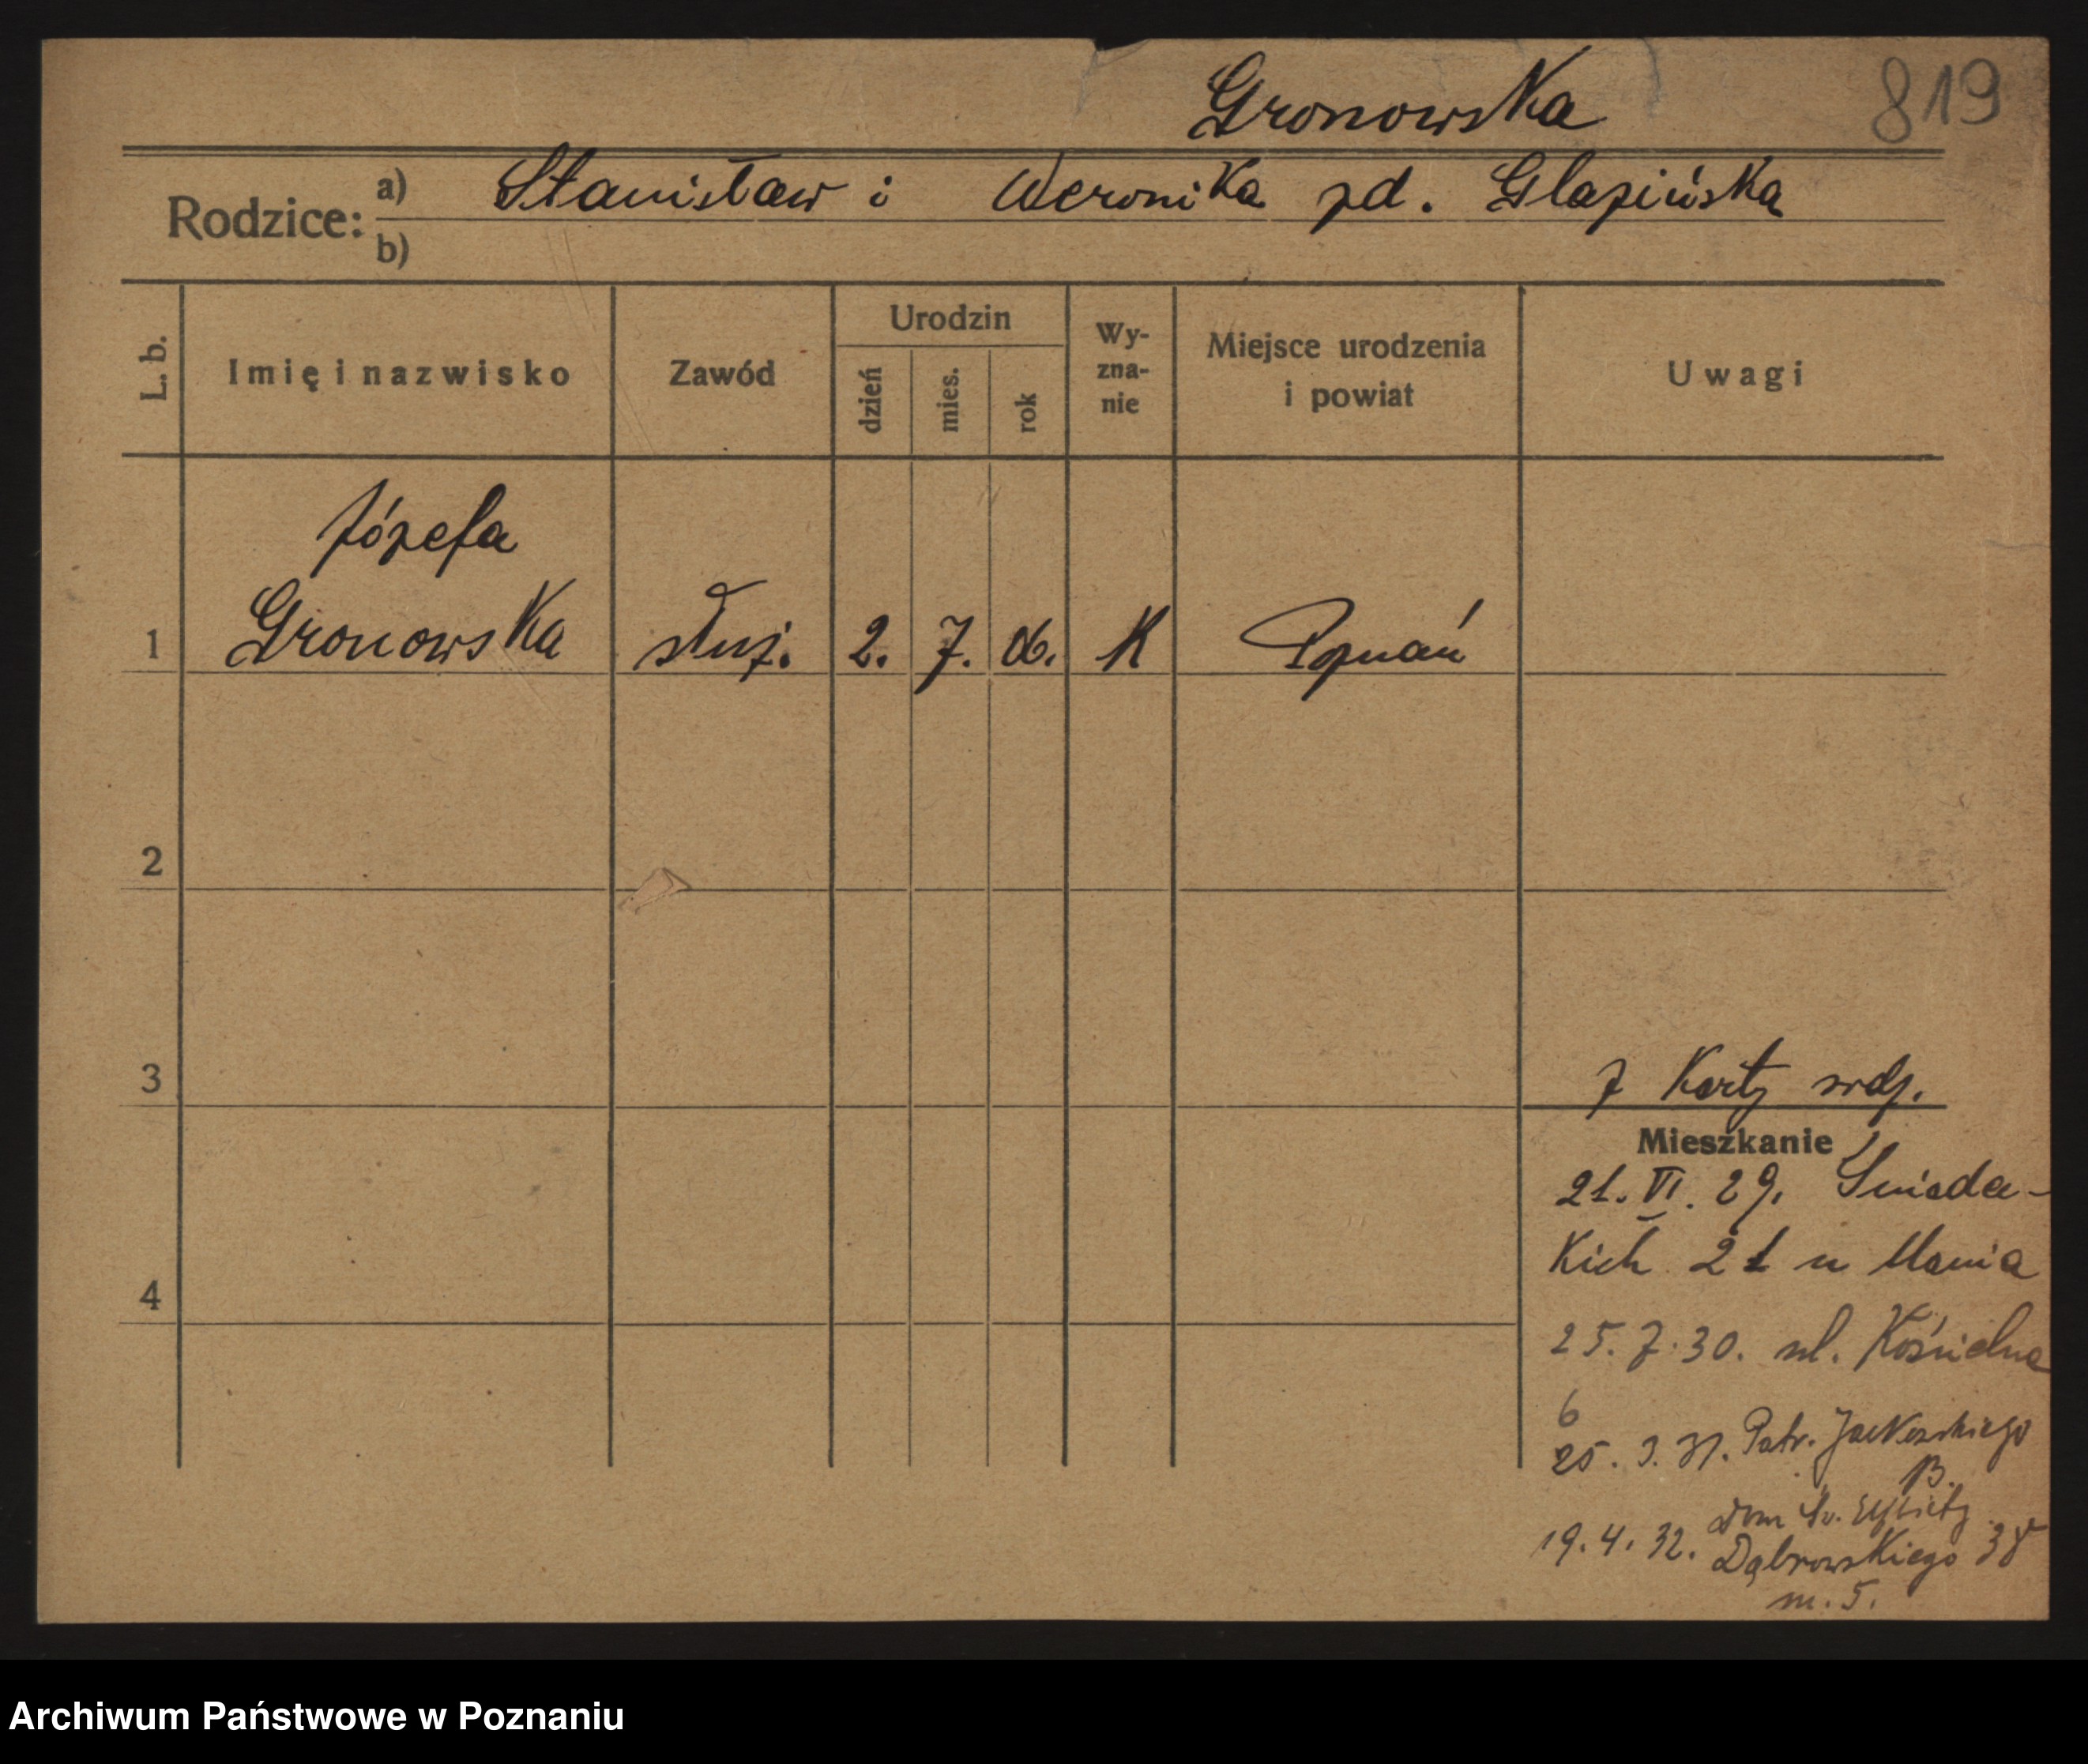 Gronowska 819
Rodzice: a) Stanisław i Weronika zd. Glapińska
b)
L. b. Imię i nazwisko Zawód Urodzin dzień mies. rok Wy-zna-nie Miejsce urodzenia i powiat Uwagi
Józefa
1 Gronowska służ. 2. 7. 06. K Poznań
2
3
z Karty rodz.
Mieszkanie
21. VI. 29. Śniadec-
kich 21 u Mania
4
25. 7. 30. ul. Kościelna
6
25. 3. 31. Patr. Jackowskiego
13.
Dom Św. Elżbiety
19. 4. 32. Dąbrowskiego 38
m. 5.
Archiwum Państwowe w Poznaniu